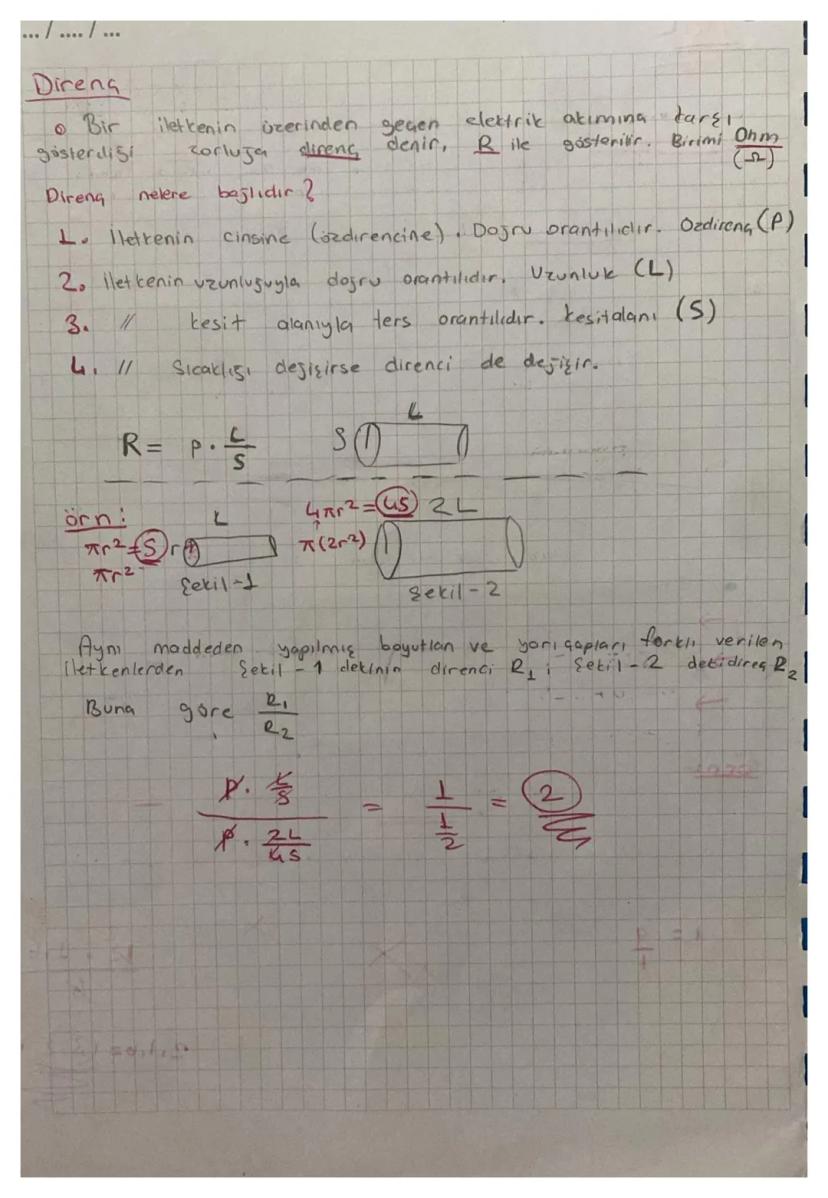 ... / .... / ...
Direnç
Bir iletkenin üzerinden geçen elektrik akımına karşı
gösterdiği zorluğa direnç denir, R ile gösterilir. Birimi Ohm
(Ω)
Direnç nelere bağlıdır?
1. İletkenin cinsine (özdirencine). Doğru orantılıdır. Özdirenç (P)
2. İletkenin uzunluğuyla doğru orantılıdır. Uzunluk (L)
3. // kesit alanıyla ters orantılıdır. kesitalanı (S)
4. // Sıcaklığı değişirse direnci de değişir.
L
R = P · L/S S
örn: L 4πr² = 4S 2L
πr² = S r π(2r²)
πr²
Şekil-1 Şekil-2
Aynı maddeden yapılmış boyutları ve yarıçapları farklı verilen
iletkenlerden Şekil-1 dekinin direnci R₁; Şekil-2 dekidireç R₂
Buna göre R₁/R₂
P · L/S / P · 2L/4S = 1 / 1/2 = 2